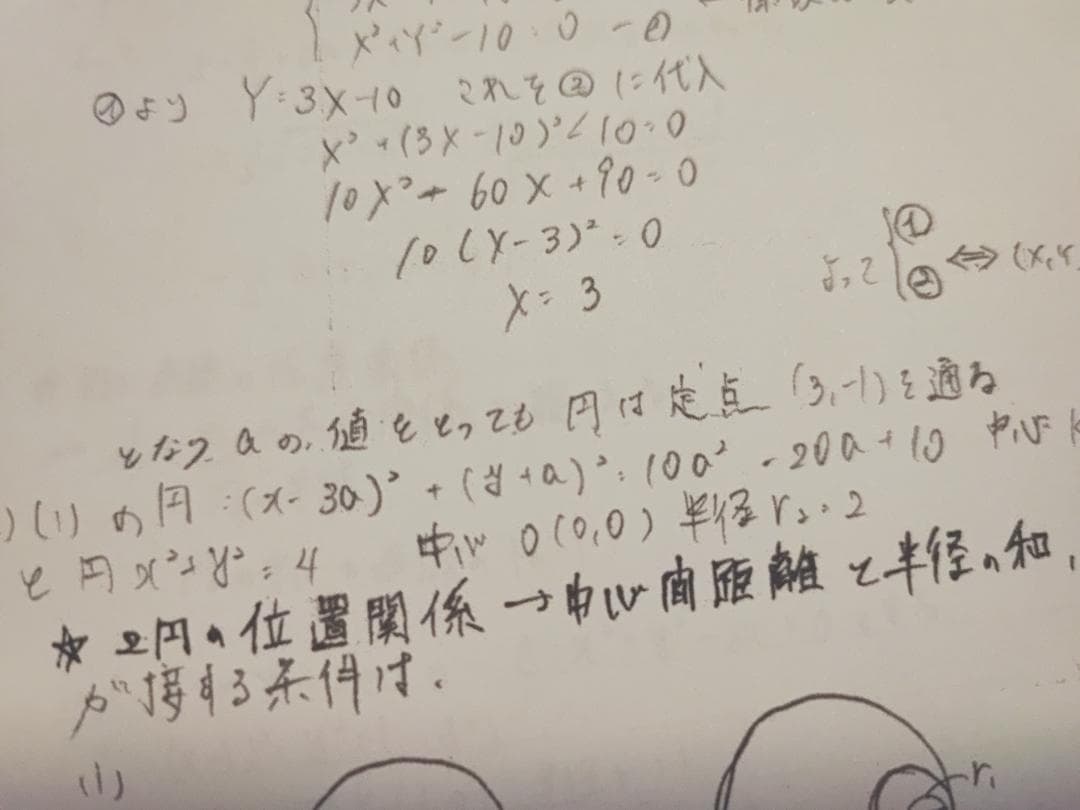 x²+y²-10=0 -②
①より Y=3X-10 これを②に代入
x²+(3x-10)²-10=0
10x²-60x+90=0
10(x-3)²=0
x=3
よって { ① ② ⇔ (x,y
となり aの値をとっても 円は定点 (3,-1)を通る
) (1) の円:(x-3a)²+(y+a)²=10a²-20a+10 中心
と 円x²+y²=4 中心 O(0,0) 半径 r₂=2
☆ 2円の位置関係 → 中心間距離と半径の和,
が接する条件は.
(1)
r₁